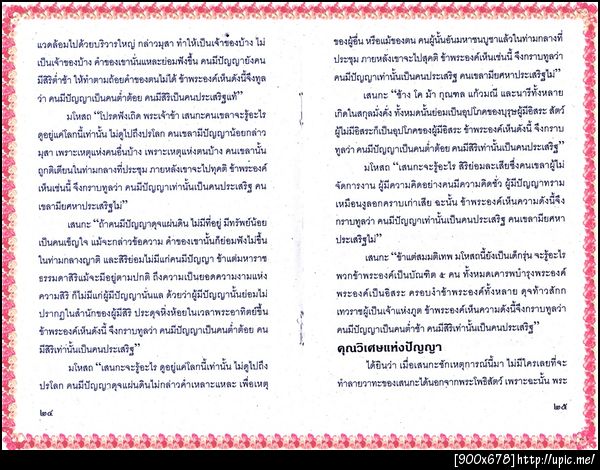 แวดล้อมไปด้วยบริวารใหญ่ กล่าวมุสา ทำให้เป็นเจ้าของบ้าง ไม่
เป็นเจ้าของบ้าง คำของเขานั้นแหละย่อมฟังขึ้น คนมีปัญญายังคน
มีสิริต่ำช้า ให้ทำตามถ้อยคำของตนไม่ได้ ข้าพระองค์เห็นดังนี้จึงทูล
ว่า คนมีปัญญาเป็นคนต่ำต้อย คนมีสิริเป็นคนประเสริฐแท้”
มโหสถ “โปรดฟังเถิด พระเจ้าข้า เสนกะคนเขลาจะรู้อะไร
ดูอยู่แค่โลกนี้เท่านั้น ไม่ดูไปถึงปรโลก คนเขลามีปัญญาน้อยกล่าว
มุสา เพราะเหตุแห่งคนอื่นบ้าง เพราะเหตุแห่งตนบ้าง คนเขลานั้น
ถูกติเตียนในท่ามกลางที่ประชุม ภายหลังเขาจะไปทุคติ ข้าพระองค์
เห็นเช่นนี้ จึงกราบทูลว่า คนมีปัญญาเท่านั้นเป็นคนประเสริฐ คน
เขลามียศหาประเสริฐไม่”
เสนกะ “ถ้าคนมีปัญญาดุจแผ่นดิน ไม่มีที่อยู่ มีทรัพย์น้อย
เป็นคนเข็ญใจ แม้จะกล่าวข้อความ คำของเขานั้นก็ย่อมฟังไม่ขึ้น
ในท่ามกลางญาติ และสิริย่อมไม่มีแก่คนมีปัญญา ข้าแต่มหาราช
ธรรมดาสิริแม้จะมีอยู่ตามปกติ ถึงความเป็นยอดความงามแห่ง
ความสิริ ก็ไม่มีแก่ผู้มีปัญญานั่นแล ด้วยว่าผู้มีปัญญานั้นย่อมไม่
ปรากฏในสำนักของผู้มีสิริ ประดุจหิ่งห้อยในเวลาพระอาทิตย์ขึ้น
ข้าพระองค์เห็นดังนี้ จึงกราบทูลว่า คนมีปัญญาเป็นคนต่ำต้อย คน
มีสิริเท่านั้นเป็นคนประเสริฐ”
มโหสถ “เสนกะจะรู้อะไร ดูอยู่แค่โลกนี้เท่านั้น ไม่ดูไปถึง
ปรโลก คนมีปัญญาดุจแผ่นดินไม่กล่าวคำเหลาะแหละ เพื่อเหตุ
๒๔
ของผู้อื่น หรือแม้ของตน คนผู้นั้นอันมหาชนบูชาแล้วในท่ามกลางที่
ประชุม ภายหลังเขาจะไปสุคติ ข้าพระองค์เห็นเช่นนี้ จึงกราบทูลว่า
คนมีปัญญาเท่านั้นเป็นคนประเสริฐ คนเขลามียศหาประเสริฐไม่”
เสนกะ “ช้าง โค ม้า กุณฑล แก้วมณี และนารีทั้งหลาย
เกิดในสกุลมั่งคั่ง ทั้งหมดนั้นย่อมเป็นอุปโภคของบุรุษผู้มีอิสระ สัตว์
ผู้ไม่มีอิสระก็เป็นอุปโภคของผู้มีอิสระ ข้าพระองค์เห็นดังนี้ จึงกราบ
ทูลว่า คนมีปัญญาเป็นคนต่ำต้อย คนมีสิริเท่านั้นเป็นคนประเสริฐ”
มโหสถ “เสนกะจะรู้อะไร สิริย่อมละเสียซึ่งคนเขลาผู้ไม่
จัดการงาน ผู้มีความคิดอย่างคนมีความคิดชั่ว ผู้มีปัญญาทราม
เหมือนงูลอกคราบเก่าเสีย ฉะนั้น ข้าพระองค์เห็นความดังนี้จึง
กราบทูลว่า คนมีปัญญาเท่านั้นเป็นคนประเสริฐ คนเขลามียศหา
ประเสริฐไม่”
เสนกะ “ข้าแต่สมมติเทพ มโหสถนี้ยังเป็นเด็กรุ่น จะรู้อะไร
พวกข้าพระองค์เป็นบัณฑิต ๕ คน ทั้งหมดเคารพบำรุงพระองค์
พระองค์เป็นอิสระ ครอบงำข้าพระองค์ทั้งหลาย ดุจท้าวสักก
เทวราชผู้เป็นเจ้าแห่งภูต ข้าพระองค์เห็นความดังนี้จึงกราบทูลว่า
คนมีปัญญาเป็นคนต่ำช้า คนมีสิริเท่านั้นเป็นคนประเสริฐ”
คุณวิเศษแห่งปัญญา
ได้ยินว่า เมื่อเสนกะชักเหตุการณ์นี้มา ไม่มีใครเลยที่จะ
ทำลายวาทะของเสนกะได้นอกจากพระโพธิสัตว์ เพราะฉะนั้น พระ
๒๕
[900x678]http://upic.me/